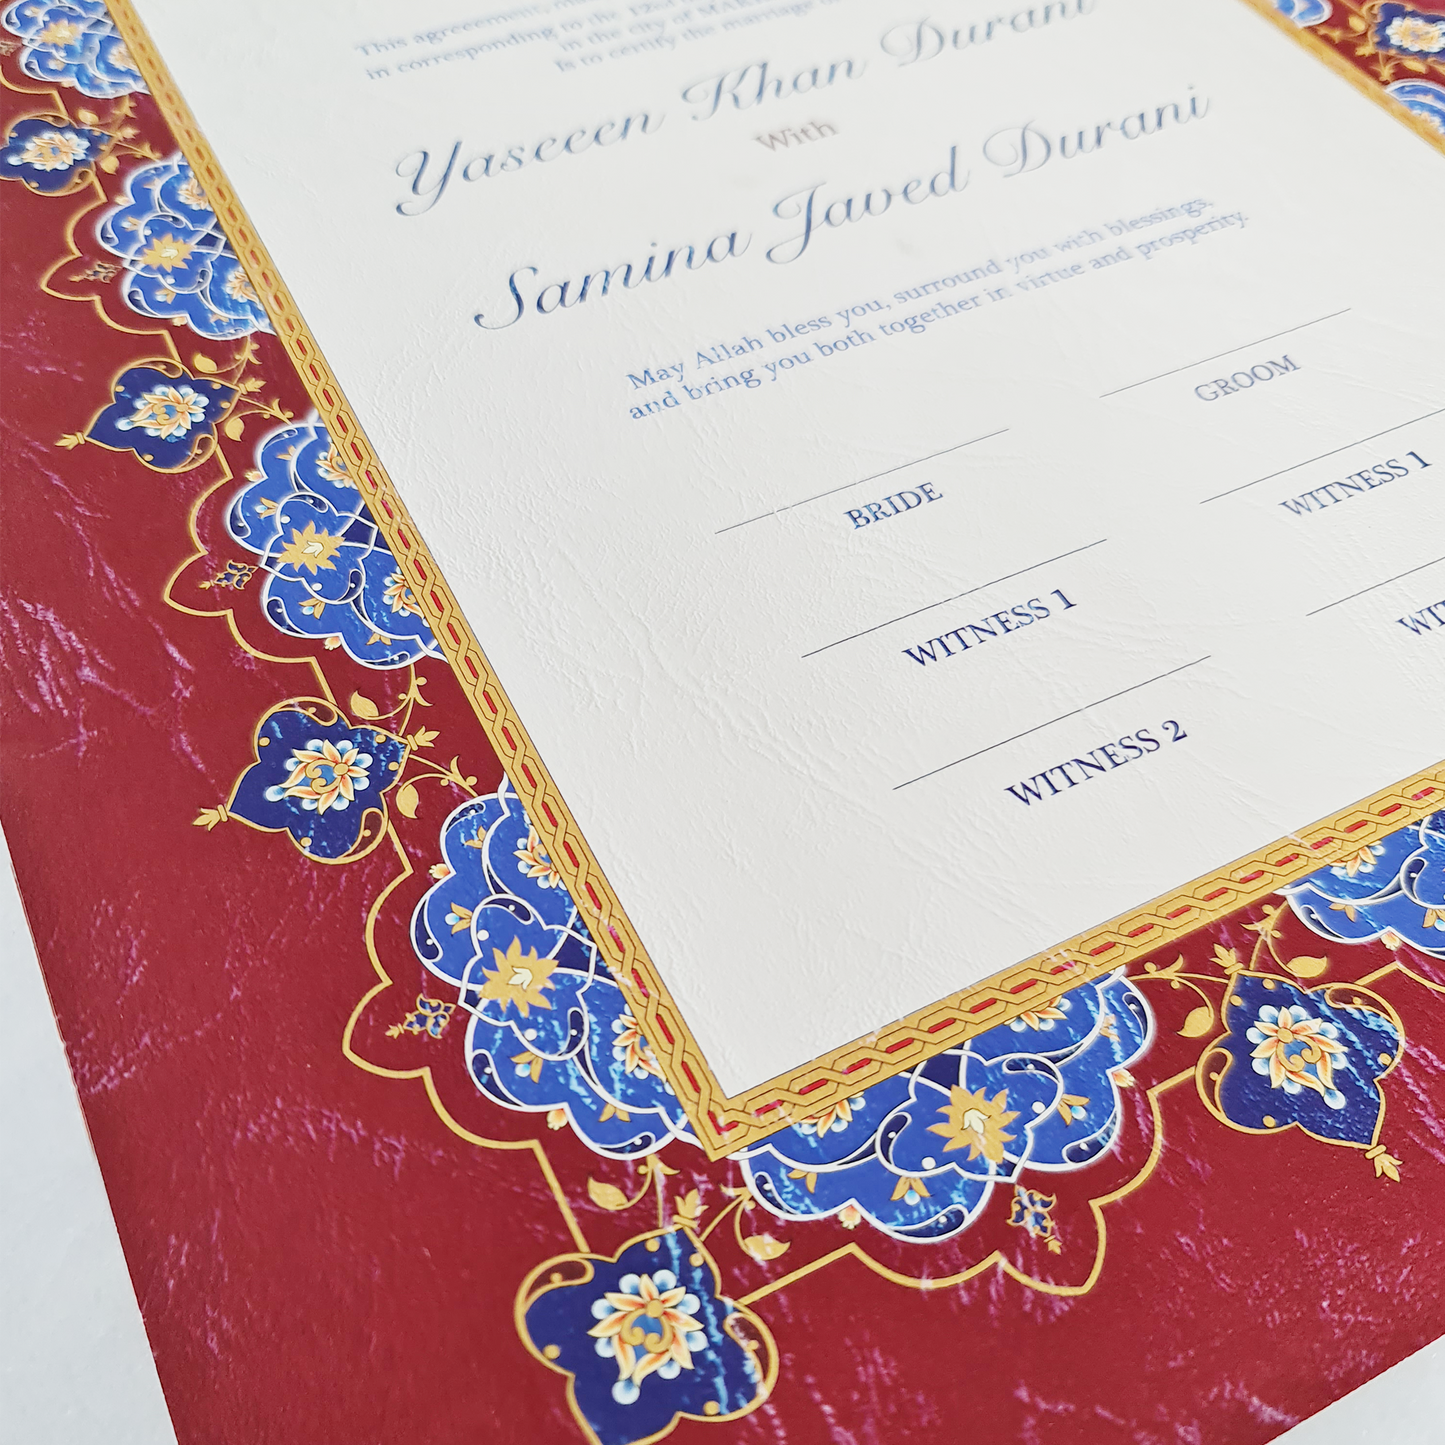 This agreement,
in corresponding to the
in the city of
Is to certify the marriage
Yaseeen Khan Durani
With
Samina Javed Durani
May Allah bless you, surround you with blessings,
and bring you both together in virtue and prosperity.
GROOM
BRIDE
WITNESS 1
WITNESS 1
WITNESS 2